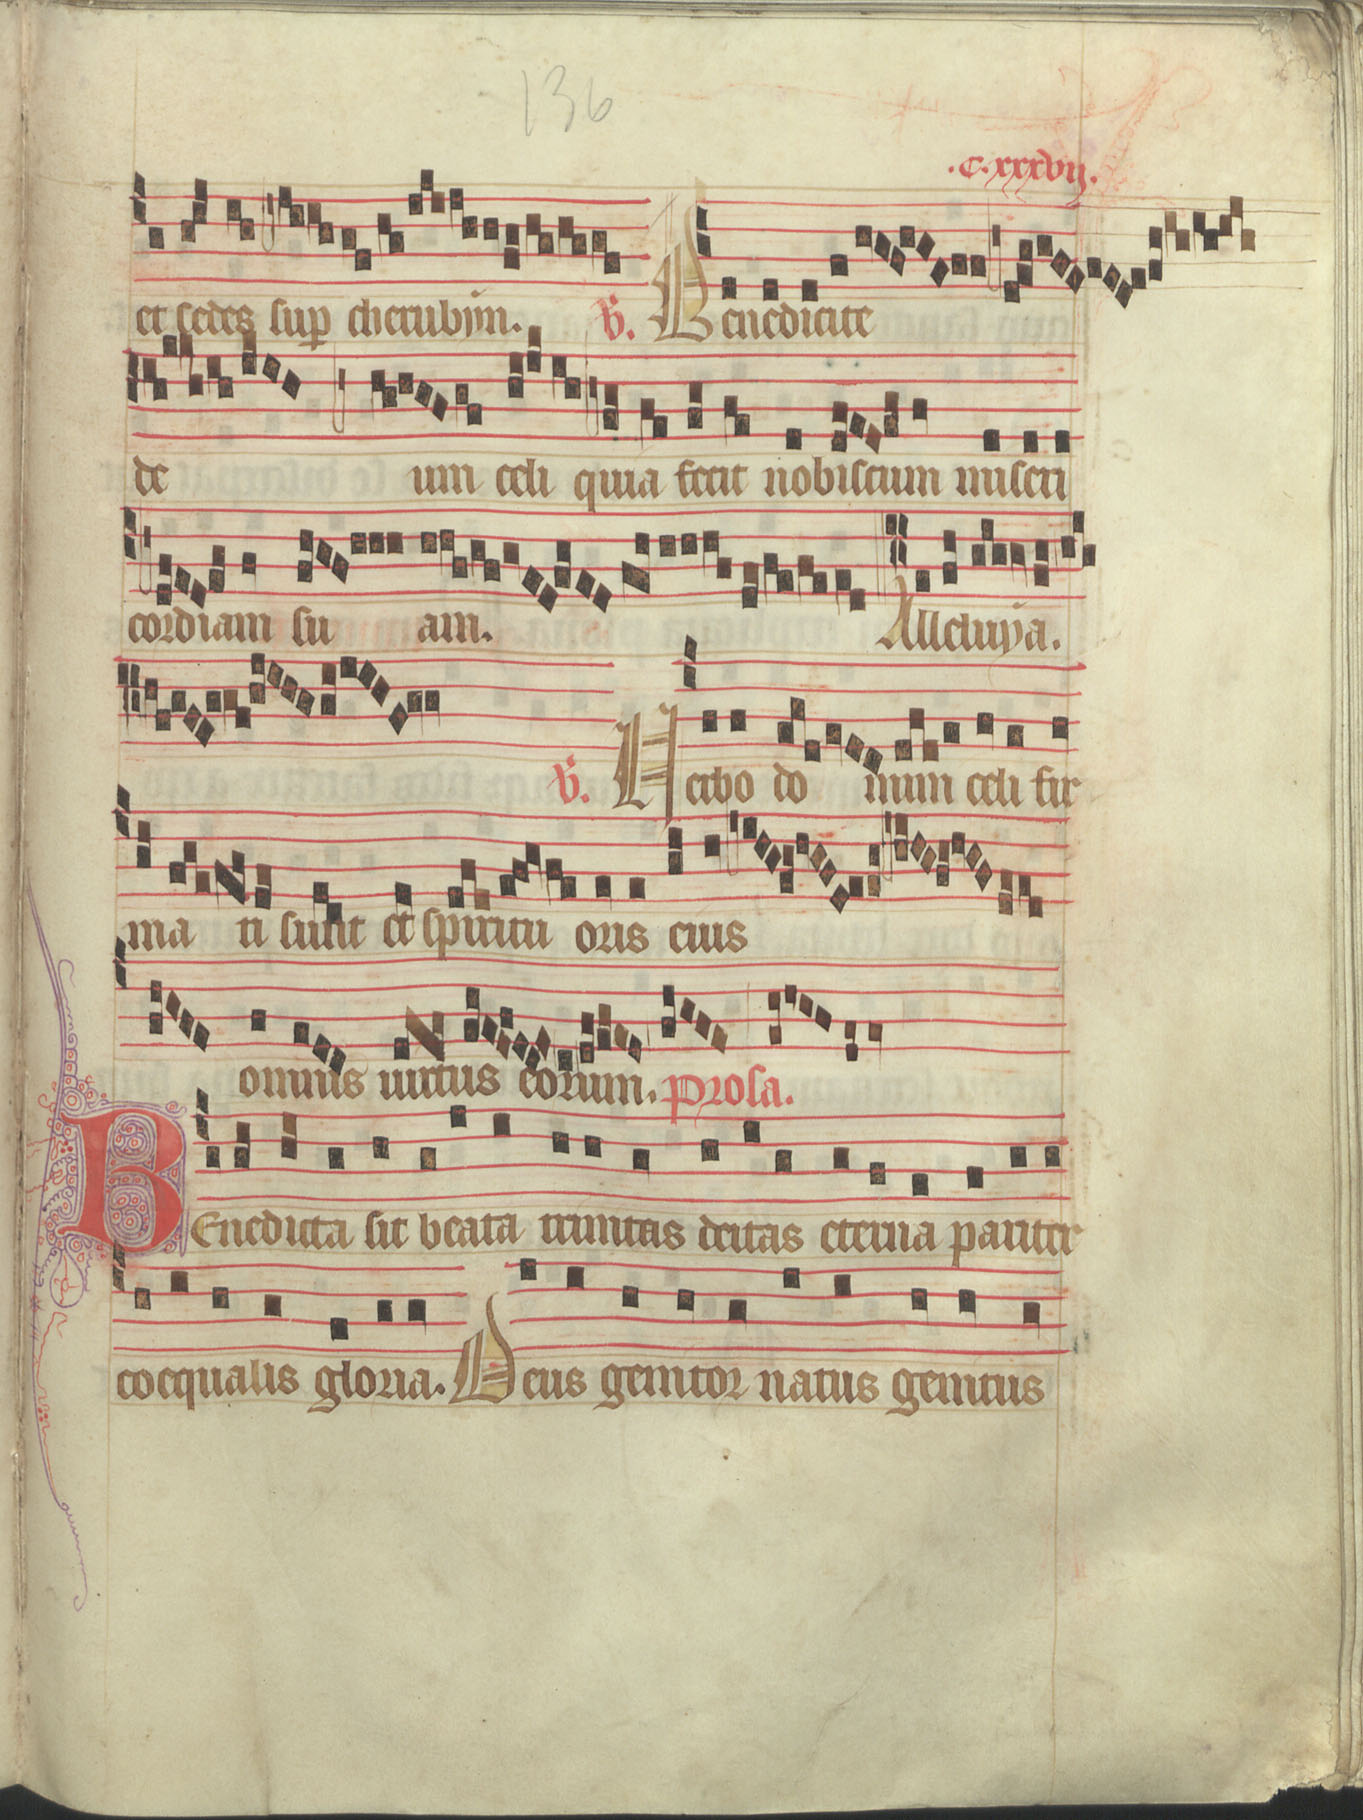 136
.c.xxxvij.
et sedes sup cherubyn. V. Benedicite
de um celi quia fecit nobiscum miseri
cordiam su am. Alleluya.
V. Uerbo do mini celi fir
ma ti sunt et spiritu oris eius
omnis uirtus eorum. Prosa.
BEnedicta sit beata trinitas deitas eterna pariter
coequalis gloria. Deus genitor natus genitus